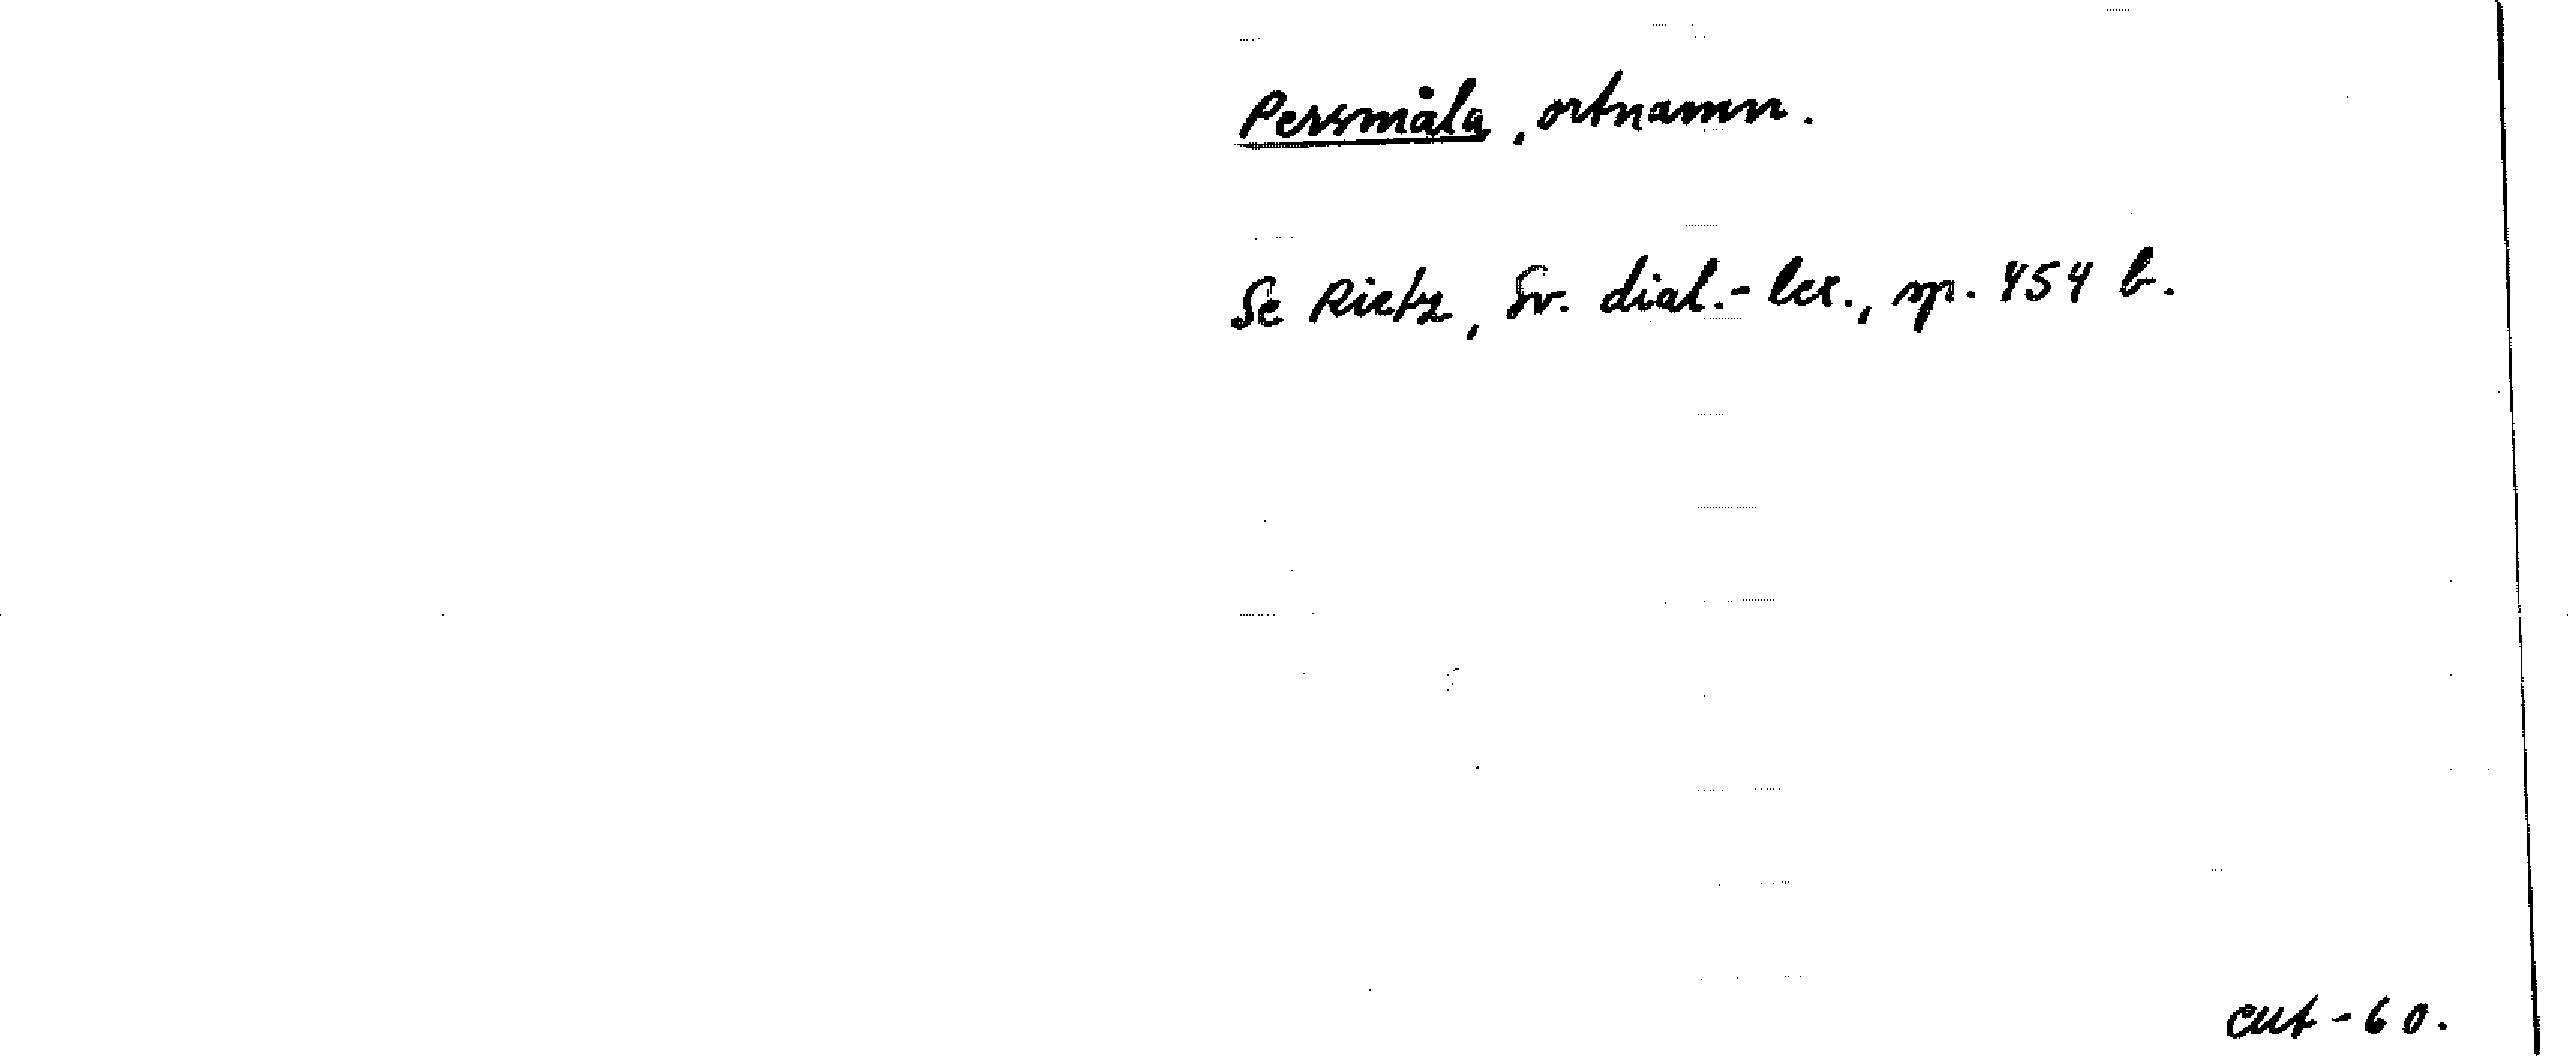 Persmåla, ortnamn.
Se Rietz, Sv. dial.-lex., sp. 454 b.
CUT-60.